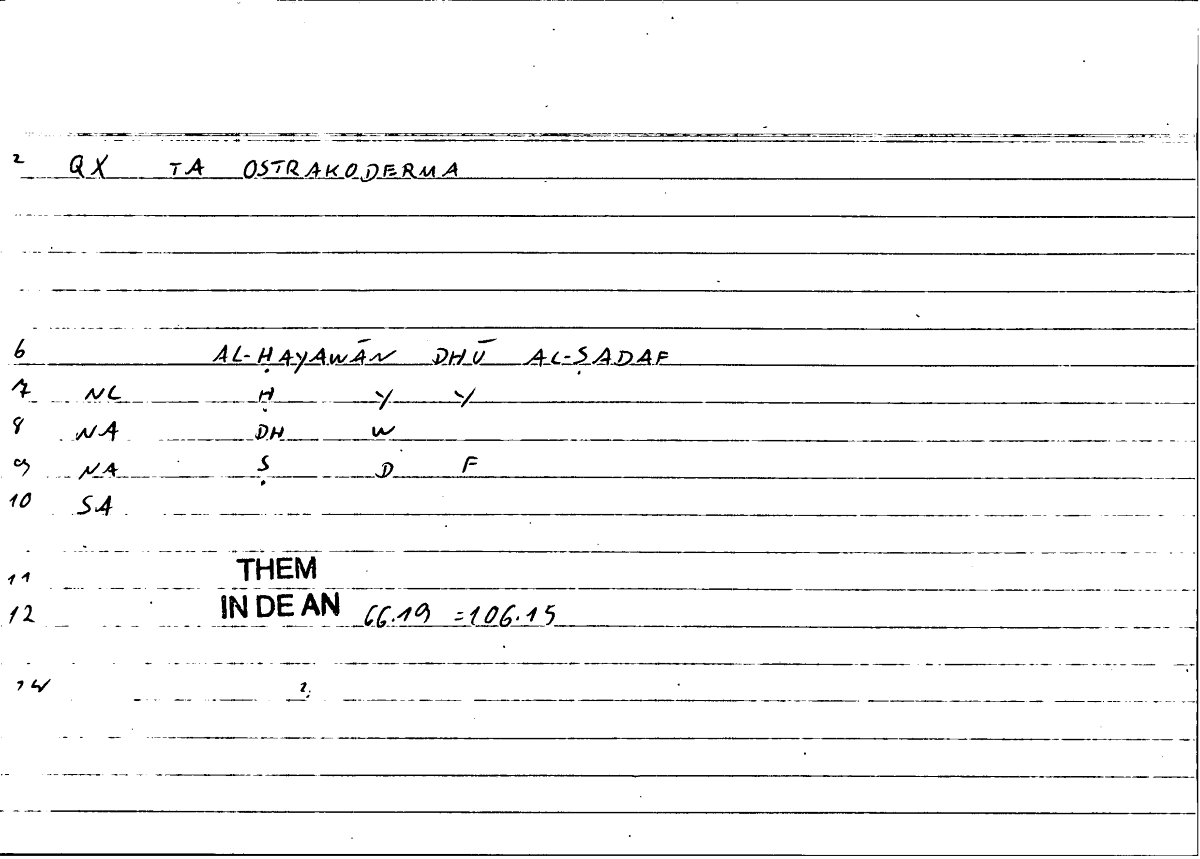 2 QX TA OSTRAKODERMA
6 AL-ḤAYAWĀN DHŪ AL-ṢADAF
7 NL Ḥ Y Y
8 NA DH W
9 NA Ṣ D F
10 SA
11 THEM
12 IN DE AN 66.19 =106.15
14 2;